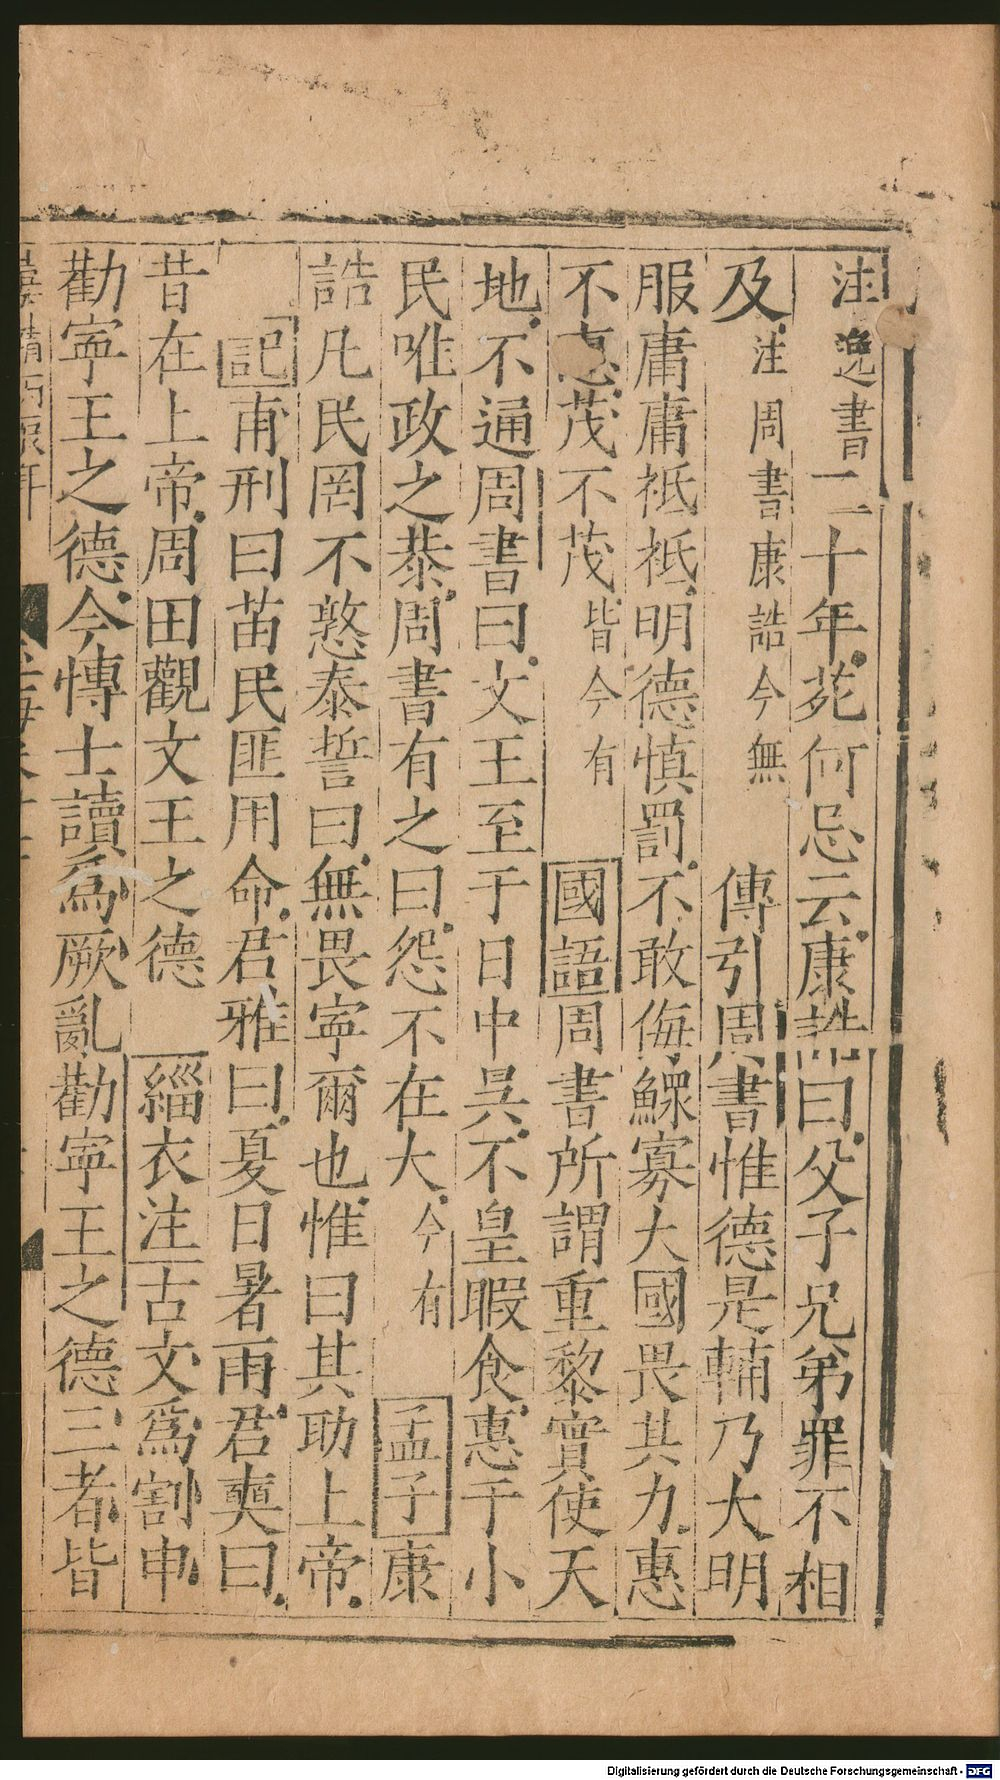 注逸書二十年苑何忌云康誥曰父子兄弟罪不相
及注周書康誥今無 傳引周書惟德是輔乃大明
服庸庸祗祗明德慎罰不敢侮鰥寡大國畏其力惠
不惠茂不茂皆今有 國語周書所謂重黎實使天
地不通周書曰文王至于日中昃不皇暇食惠于小
民唯政之恭周書有之曰怨不在大今有 孟子康
誥凡民罔不憝泰誓曰無畏寧爾也惟曰其助上帝
記甫刑曰苗民匪用命君雅曰夏日暑雨君奭曰
昔在上帝周田觀文王之德 緇衣注古文為割申
勸寧王之德今慱士讀為厥亂勸寧王之德三者皆
Digitalisierung gefördert durch die Deutsche Forschungsgemeinschaft - DFG